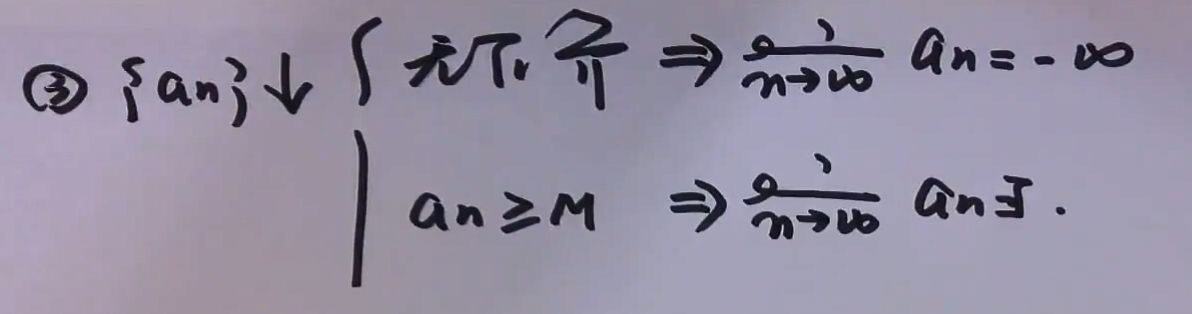 ③ {an}↓ { 无下界 ⇒ lim n→∞ an = -∞
an ≥ M ⇒ lim n→∞ an∃.